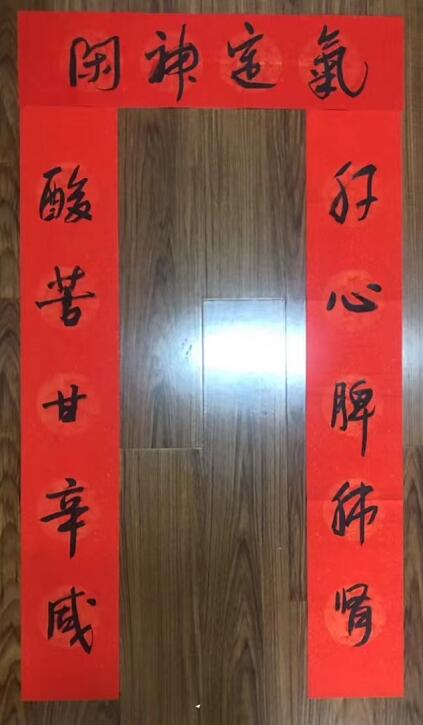 氣定神閑
肝心脾肺肾
酸苦甘辛咸